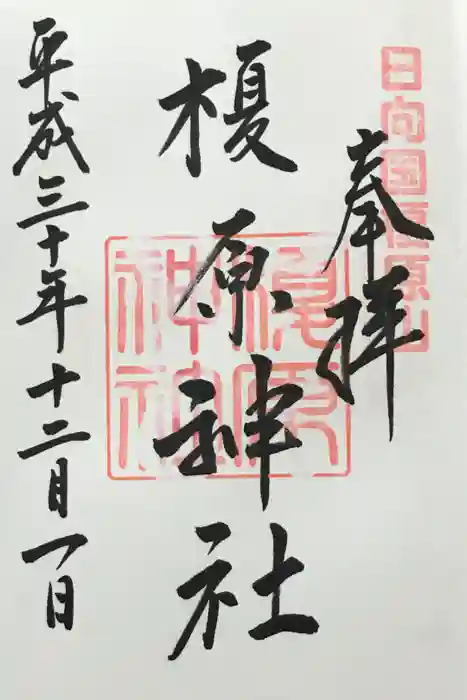 奉拝
日向国榎原
榎原神社
平成三十年十二月一日